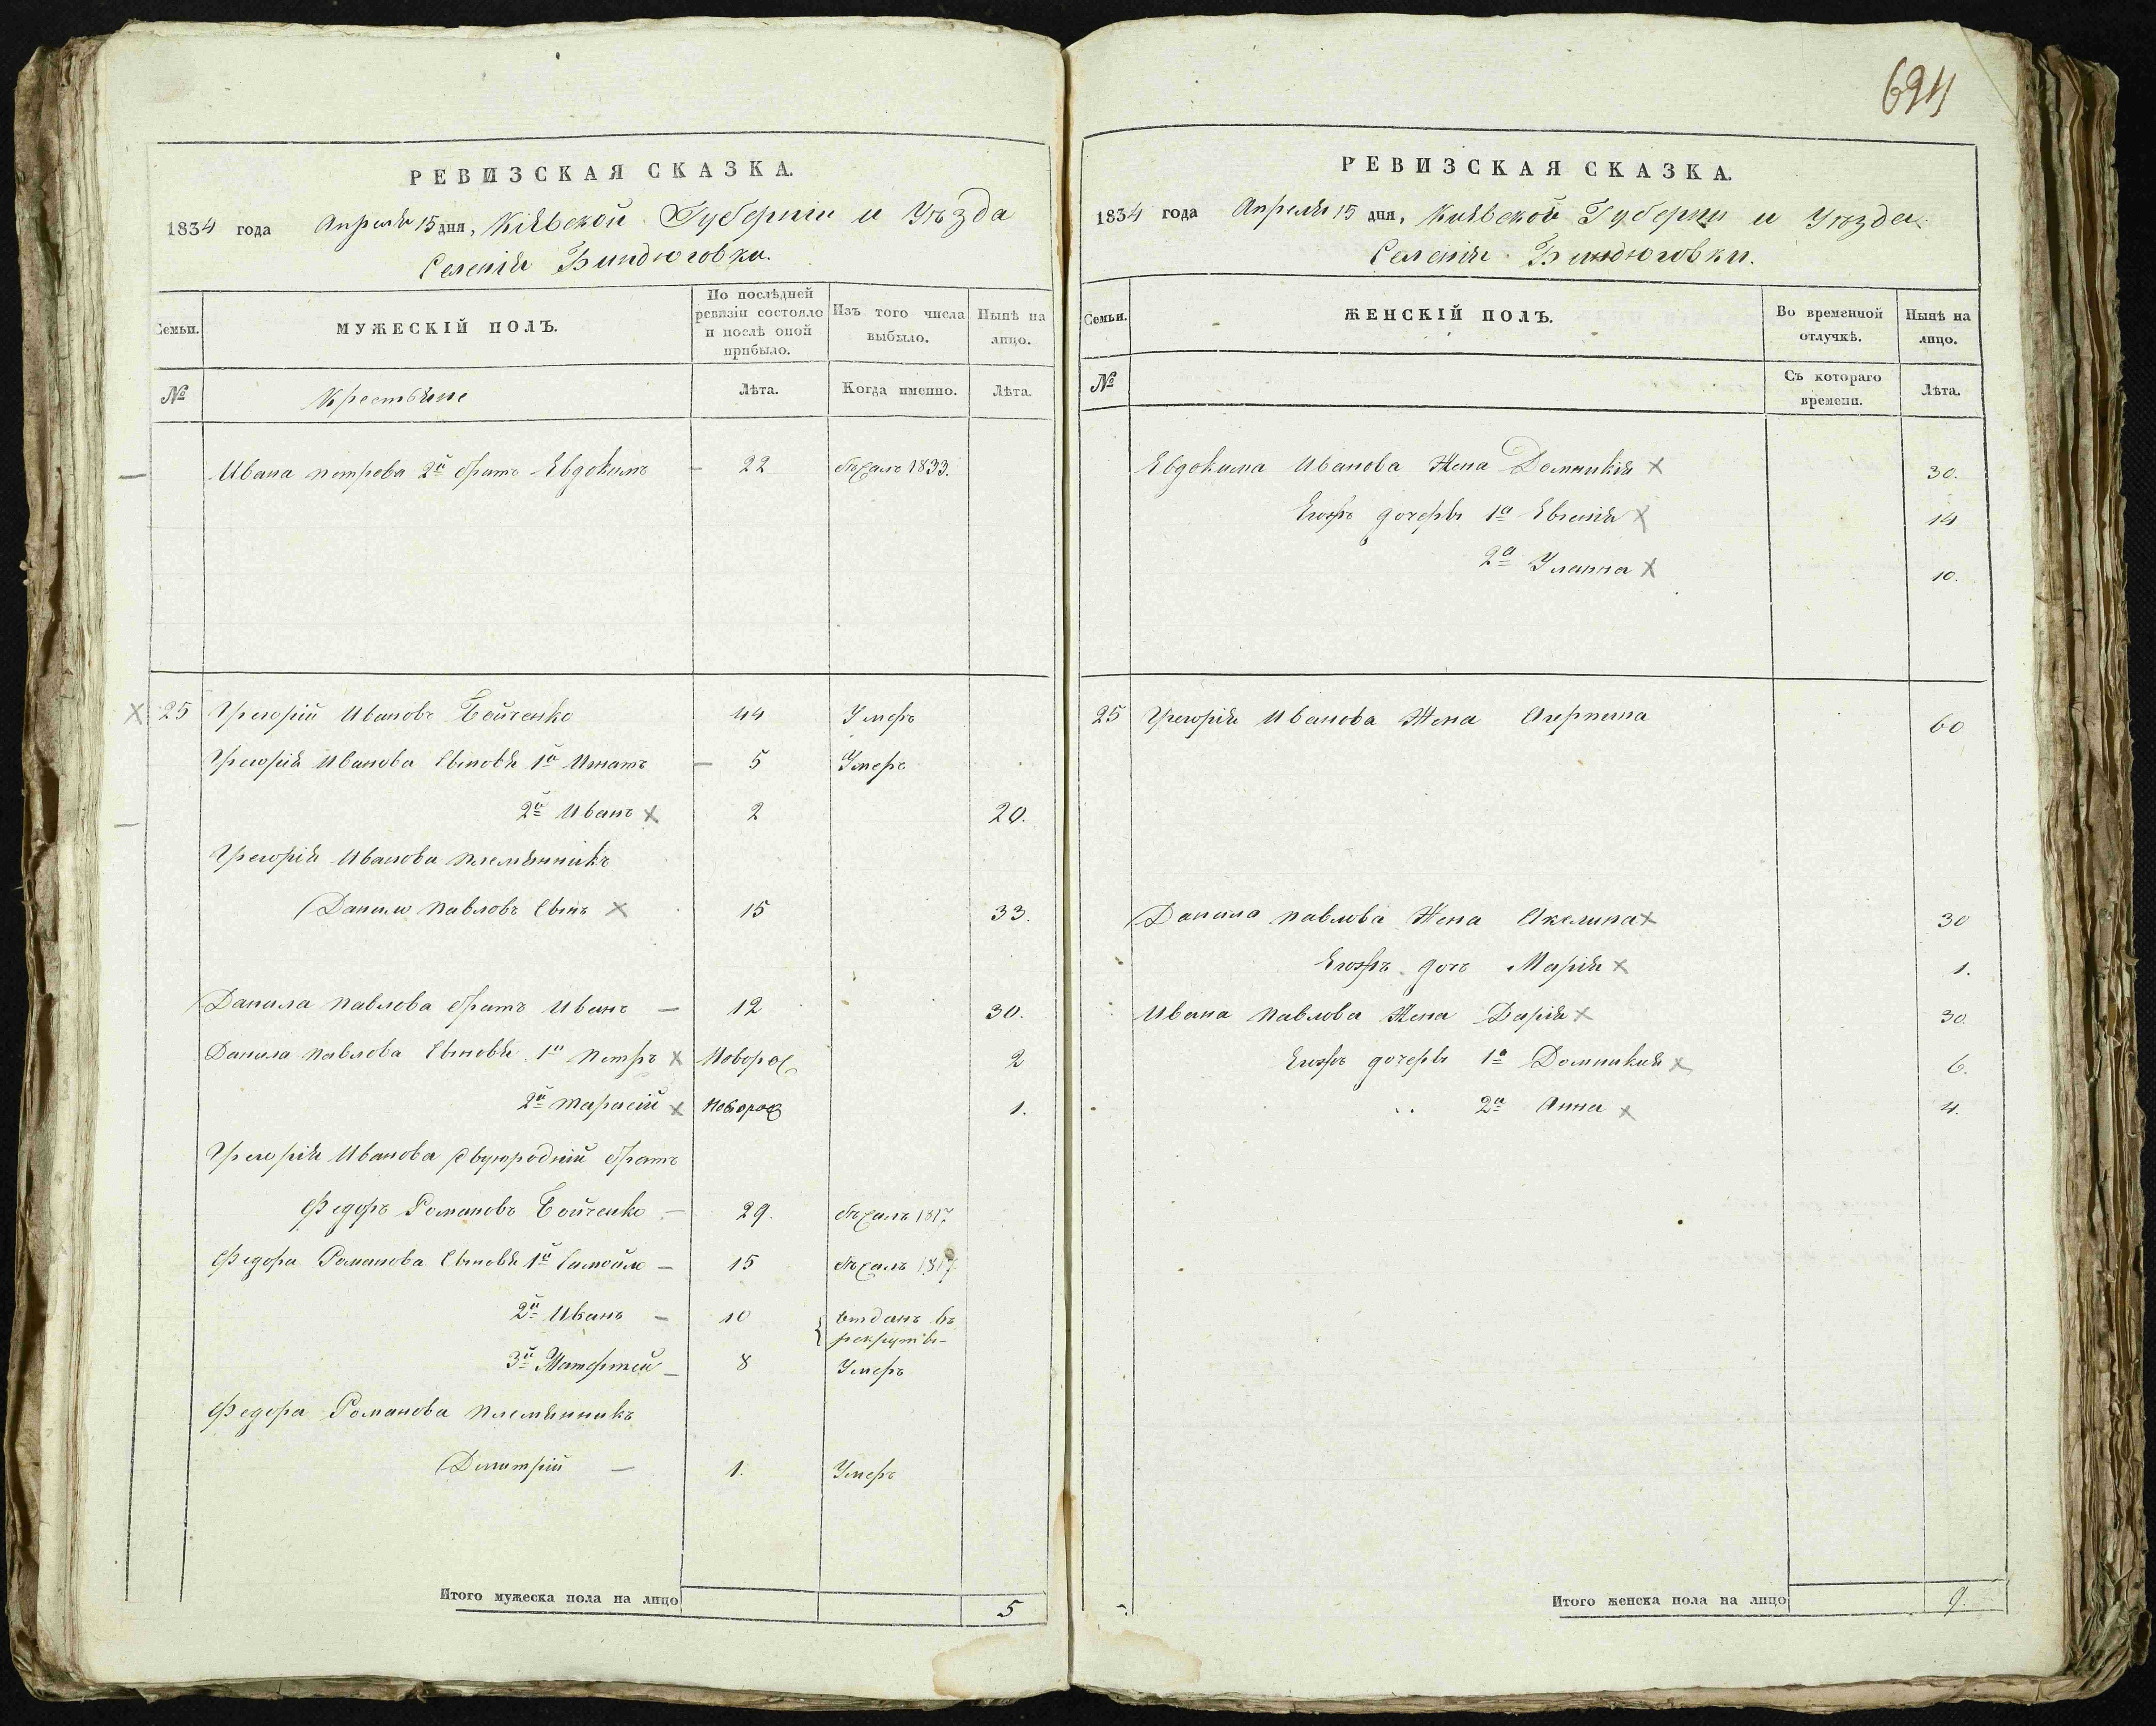 РЕВИЗСКАЯ СКАЗКА.
1834 года Апреля 15 дня, Кіевской Губерніи и Уѣзда
Селенія Биндюговки.
Семьи.
МУЖЕСКІЙ ПОЛЪ.
По послѣдней
ревизіи состояло
и послѣ оной
прибыло.
Изъ того числа
выбыло.
Нынѣ на
лицо.
№
Крестьяне
Лѣта.
Когда именно.
Лѣта.
Ивана петрова 2й братъ Евдокимъ — 22 бѣжалъ 1833.
25 Григорій Ивановъ Бойченко 44 Умеръ
Григорія Иванова Сыновья 1й Игнатъ — 5 Умеръ
2й Иванъ 2 20.
Григорія Иванова племянникъ
Данило павловъ Сынъ 15 33.
Данила павлова братъ Иванъ — 12 30.
Данила павлова Сыновья 1й петръ Новорож 2
2й тарасій Новорож 1.
Григорія Иванова двуюродній братъ
Федоръ Романовъ Бойченко — 29. бѣжалъ 1817
Федора Романова Сыновья 1й Самойло — 15 бѣжалъ 1817
2й Иванъ — 10 отданъ въ
рекруты
3й Матфтей — 8 Умеръ
Федора Романова племянникъ
Дмитрій — 1. Умеръ
Итого мужеска пола на лицо 5
694
РЕВИЗСКАЯ СКАЗКА.
1834 года Апреля 15 дня, Кіевской Губерніи и Уѣзда
Селенія Биндюговки.
Семьи.
ЖЕНСКІЙ ПОЛЪ.
Во временной
отлучкѣ.
Нынѣ на
лицо.
№
Съ котораго
времени.
Лѣта.
Евдокима Иванова Жена Домникія 30.
Егожъ дочеры 1а Евгенія 14
2а Улянна 10.
25 Григорія Иванова Жена Агрпина 60
Данила павлова Жена Акелина 30
Егожъ доч Марія 1.
Ивана павлова Жена Дарія 30.
Егожъ дочеры 1а Домникия 6.
2а Анна 4.
Итого женска пола на лицо 9.